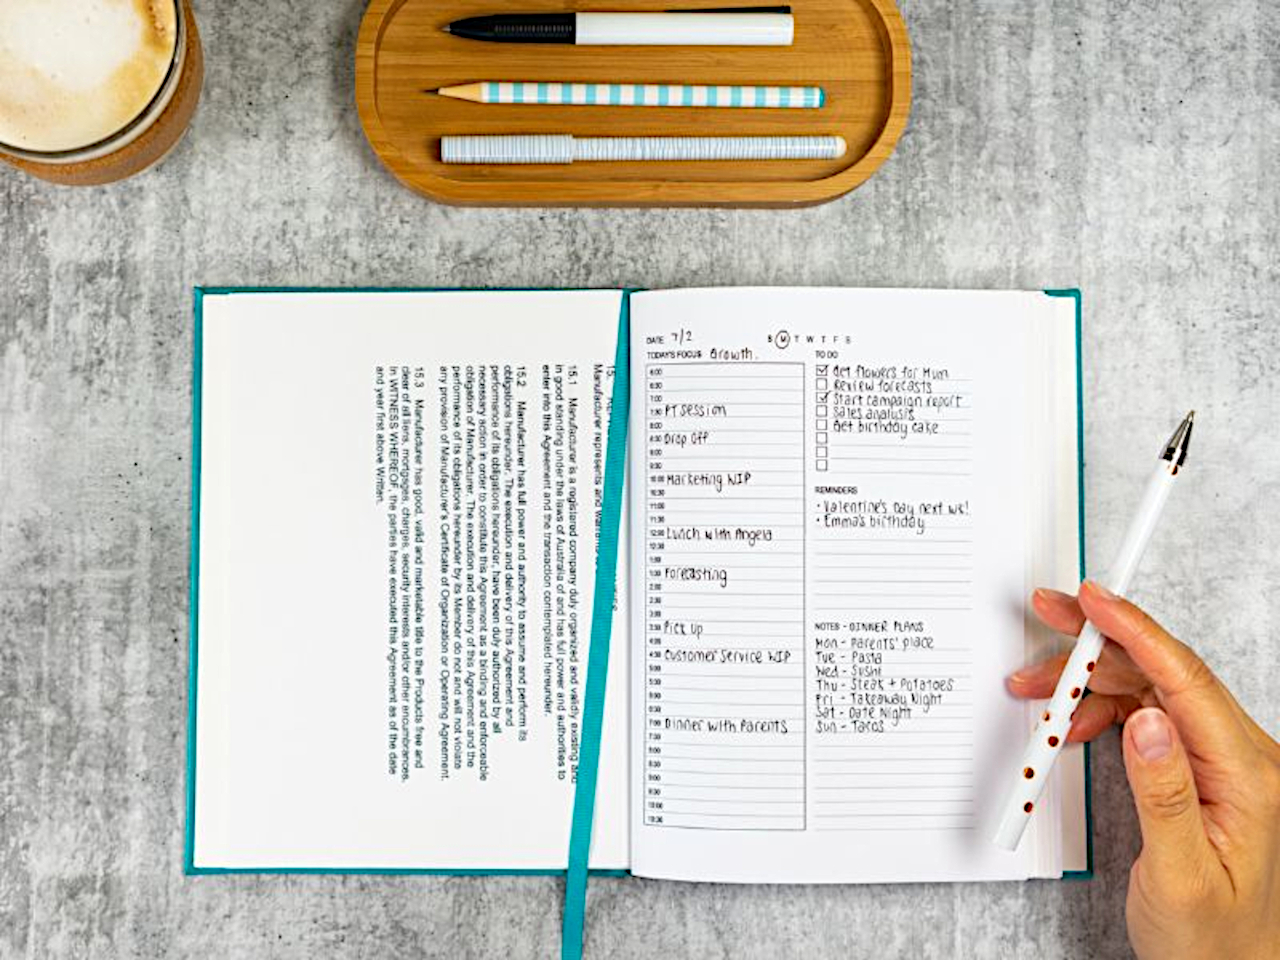 15.
Manufacturer represents and warrants
15.1 Manufacturer is a registered company duly organized and validly existing and
in good standing under the laws of Australia of and has full power and authorities to
enter into this Agreement and the transaction contemplated hereunder.
15.2 Manufacturer has full power and authority to assume and perform its
obligations hereunder. The execution and delivery of this Agreement and
performance of its obligations hereunder, have been duly authorized by all
necessary action in order to constitute this Agreement as a binding and enforceable
obligation of Manufacturer. The execution and delivery of this Agreement and the
performance of its obligations hereunder by its Member do not and will not violate
any provision of Manufacturer's Certificate of Organization or Operating Agreement.
15.3 Manufacturer has good, valid and marketable title to the Products free and
clear of all liens, mortgages, charges, security interests and/or other encumbrances.
In WITNESS WHEREOF, the parties have executed this Agreement as of the date
and year first above Written.
DATE 7/2 S M T W T F S
TODAY'S FOCUS Growth.
6:00
6:30
7:00
7:30 PT session
8:00
8:30 Drop off
9:00
9:30
10:00 Marketing WIP
10:30
11:00
11:30
12:00 Lunch with Angela
12:30
1:00
1:30 Forecasting
2:00
2:30
3:00
3:30 Pick up
4:00
4:30 Customer Service WIP
5:00
5:30
6:00
6:30
7:00 Dinner with Parents
7:30
8:00
8:30
9:00
9:30
10:00
10:30
TO DO
Get flowers for Mum
Review forecasts
Start campaign report
Sales analysis
Get birthday cake
REMINDERS
• Valentine's Day next wk!
• Emma's birthday
NOTES - DINNER PLANS
Mon - Parents' place
Tue - Pasta
Wed - Sushi
Thu - Steak + Potatoes
Fri - Takeaway Night
Sat - Date Night
Sun - Tacos